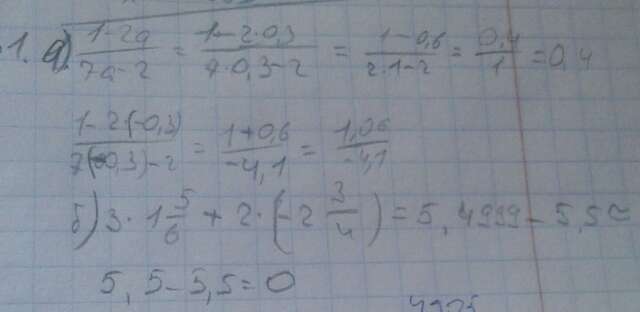 1. а) (1-2а)/(7а-2) = (1-2·0,3)/(7·0,3-2) = (1-0,6)/(2·1-2) = 0,4/1 = 0,4
(1-2(-0,3))/(7(-0,3)-2) = (1+0,6)/(-4,1) = 1,06/(-4,1)
б) 3·1 5/6 + 2·(-2 3/4) = 5,4999 - 5,5 ≈
5,5-5,5=0